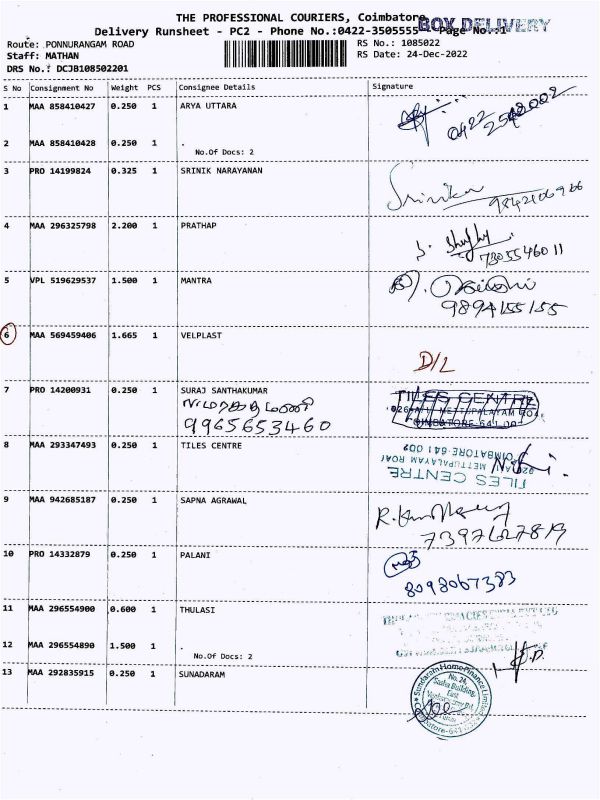 THE PROFESSIONAL COURIERS, Coimbatore
BOX DELIVERY
Delivery Runsheet - PC2 - Phone No.:0422-3505555 Page No.:1
Route: PONNURANGAM ROAD RS No.: 1085022
Staff: MATHAN RS Date: 24-Dec-2022
DRS No.: DCJB108502201
S No Consignment No Weight PCS Consignee Details Signature
1 MAA 858410427 0.250 1 ARYA UTTARA
0422
2 MAA 858410428 0.250 1 .
No.Of Docs: 2
3 PRO 14199824 0.325 1 SRINIK NARAYANAN
Srinika
9842106966
4 MAA 296325798 2.200 1 PRATHAP
7305546011
5 VPL 519629537 1.500 1 MANTRA
9894155155
6 MAA 569459406 1.665 1 VELPLAST
D/L
7 PRO 14200931 0.250 1 SURAJ SANTHAKUMAR
9965653460
TILES CENTRE
METTUPALAYAM ROAD
COIMBATORE-641 002
8 MAA 293347493 0.250 1 TILES CENTRE
TILES CENTRE
METTUPALAYAM ROAD
COIMBATORE-641 002
9 MAA 942685187 0.250 1 SAPNA AGRAWAL
7397627819
10 PRO 14332879 0.250 1 PALANI
8098067383
11 MAA 296554900 0.600 1 THULASI
12 MAA 296554890 1.500 1 .
No.Of Docs: 2
13 MAA 292835915 0.250 1 SUNADARAM
Sundaram Home Finance Limited
No. 24,
Building
East